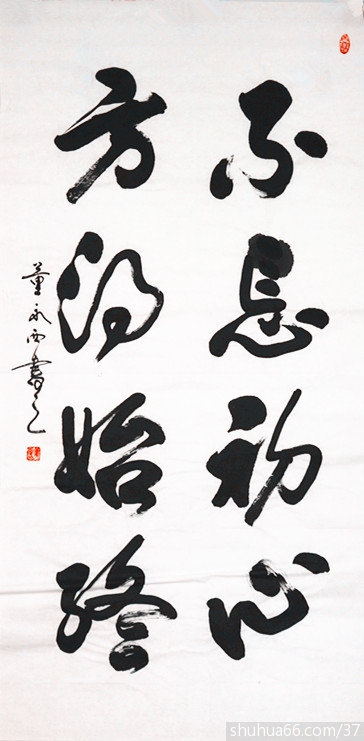 不忘初心
方得始终
董永西书之
shuhua66.com/37